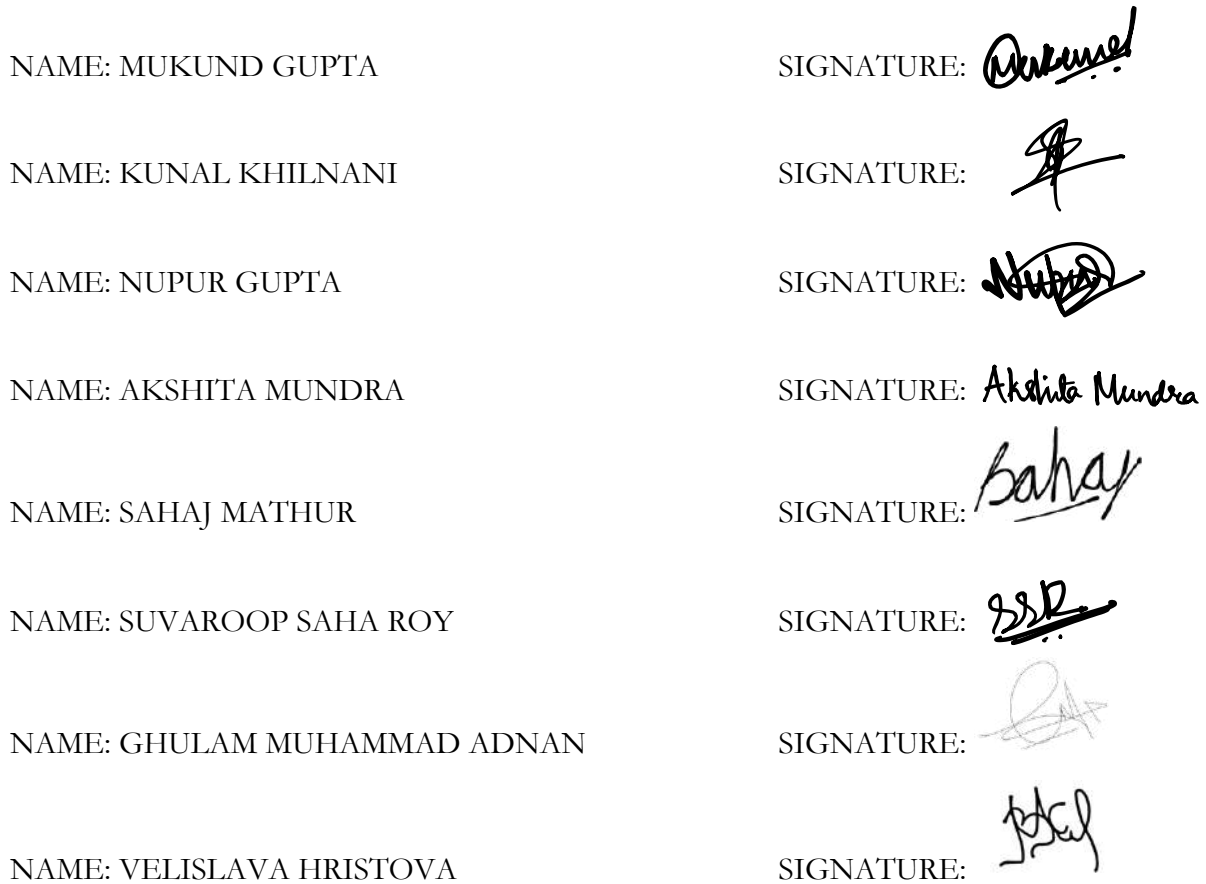 NAME: MUKUND GUPTA SIGNATURE: Mukund
NAME: KUNAL KHILNANI SIGNATURE:
NAME: NUPUR GUPTA SIGNATURE: Nupur
NAME: AKSHITA MUNDRA SIGNATURE: Akshita Mundra
NAME: SAHAJ MATHUR SIGNATURE: Sahaj
NAME: SUVAROOP SAHA ROY SIGNATURE: SSR
NAME: GHULAM MUHAMMAD ADNAN SIGNATURE:
NAME: VELISLAVA HRISTOVA SIGNATURE: